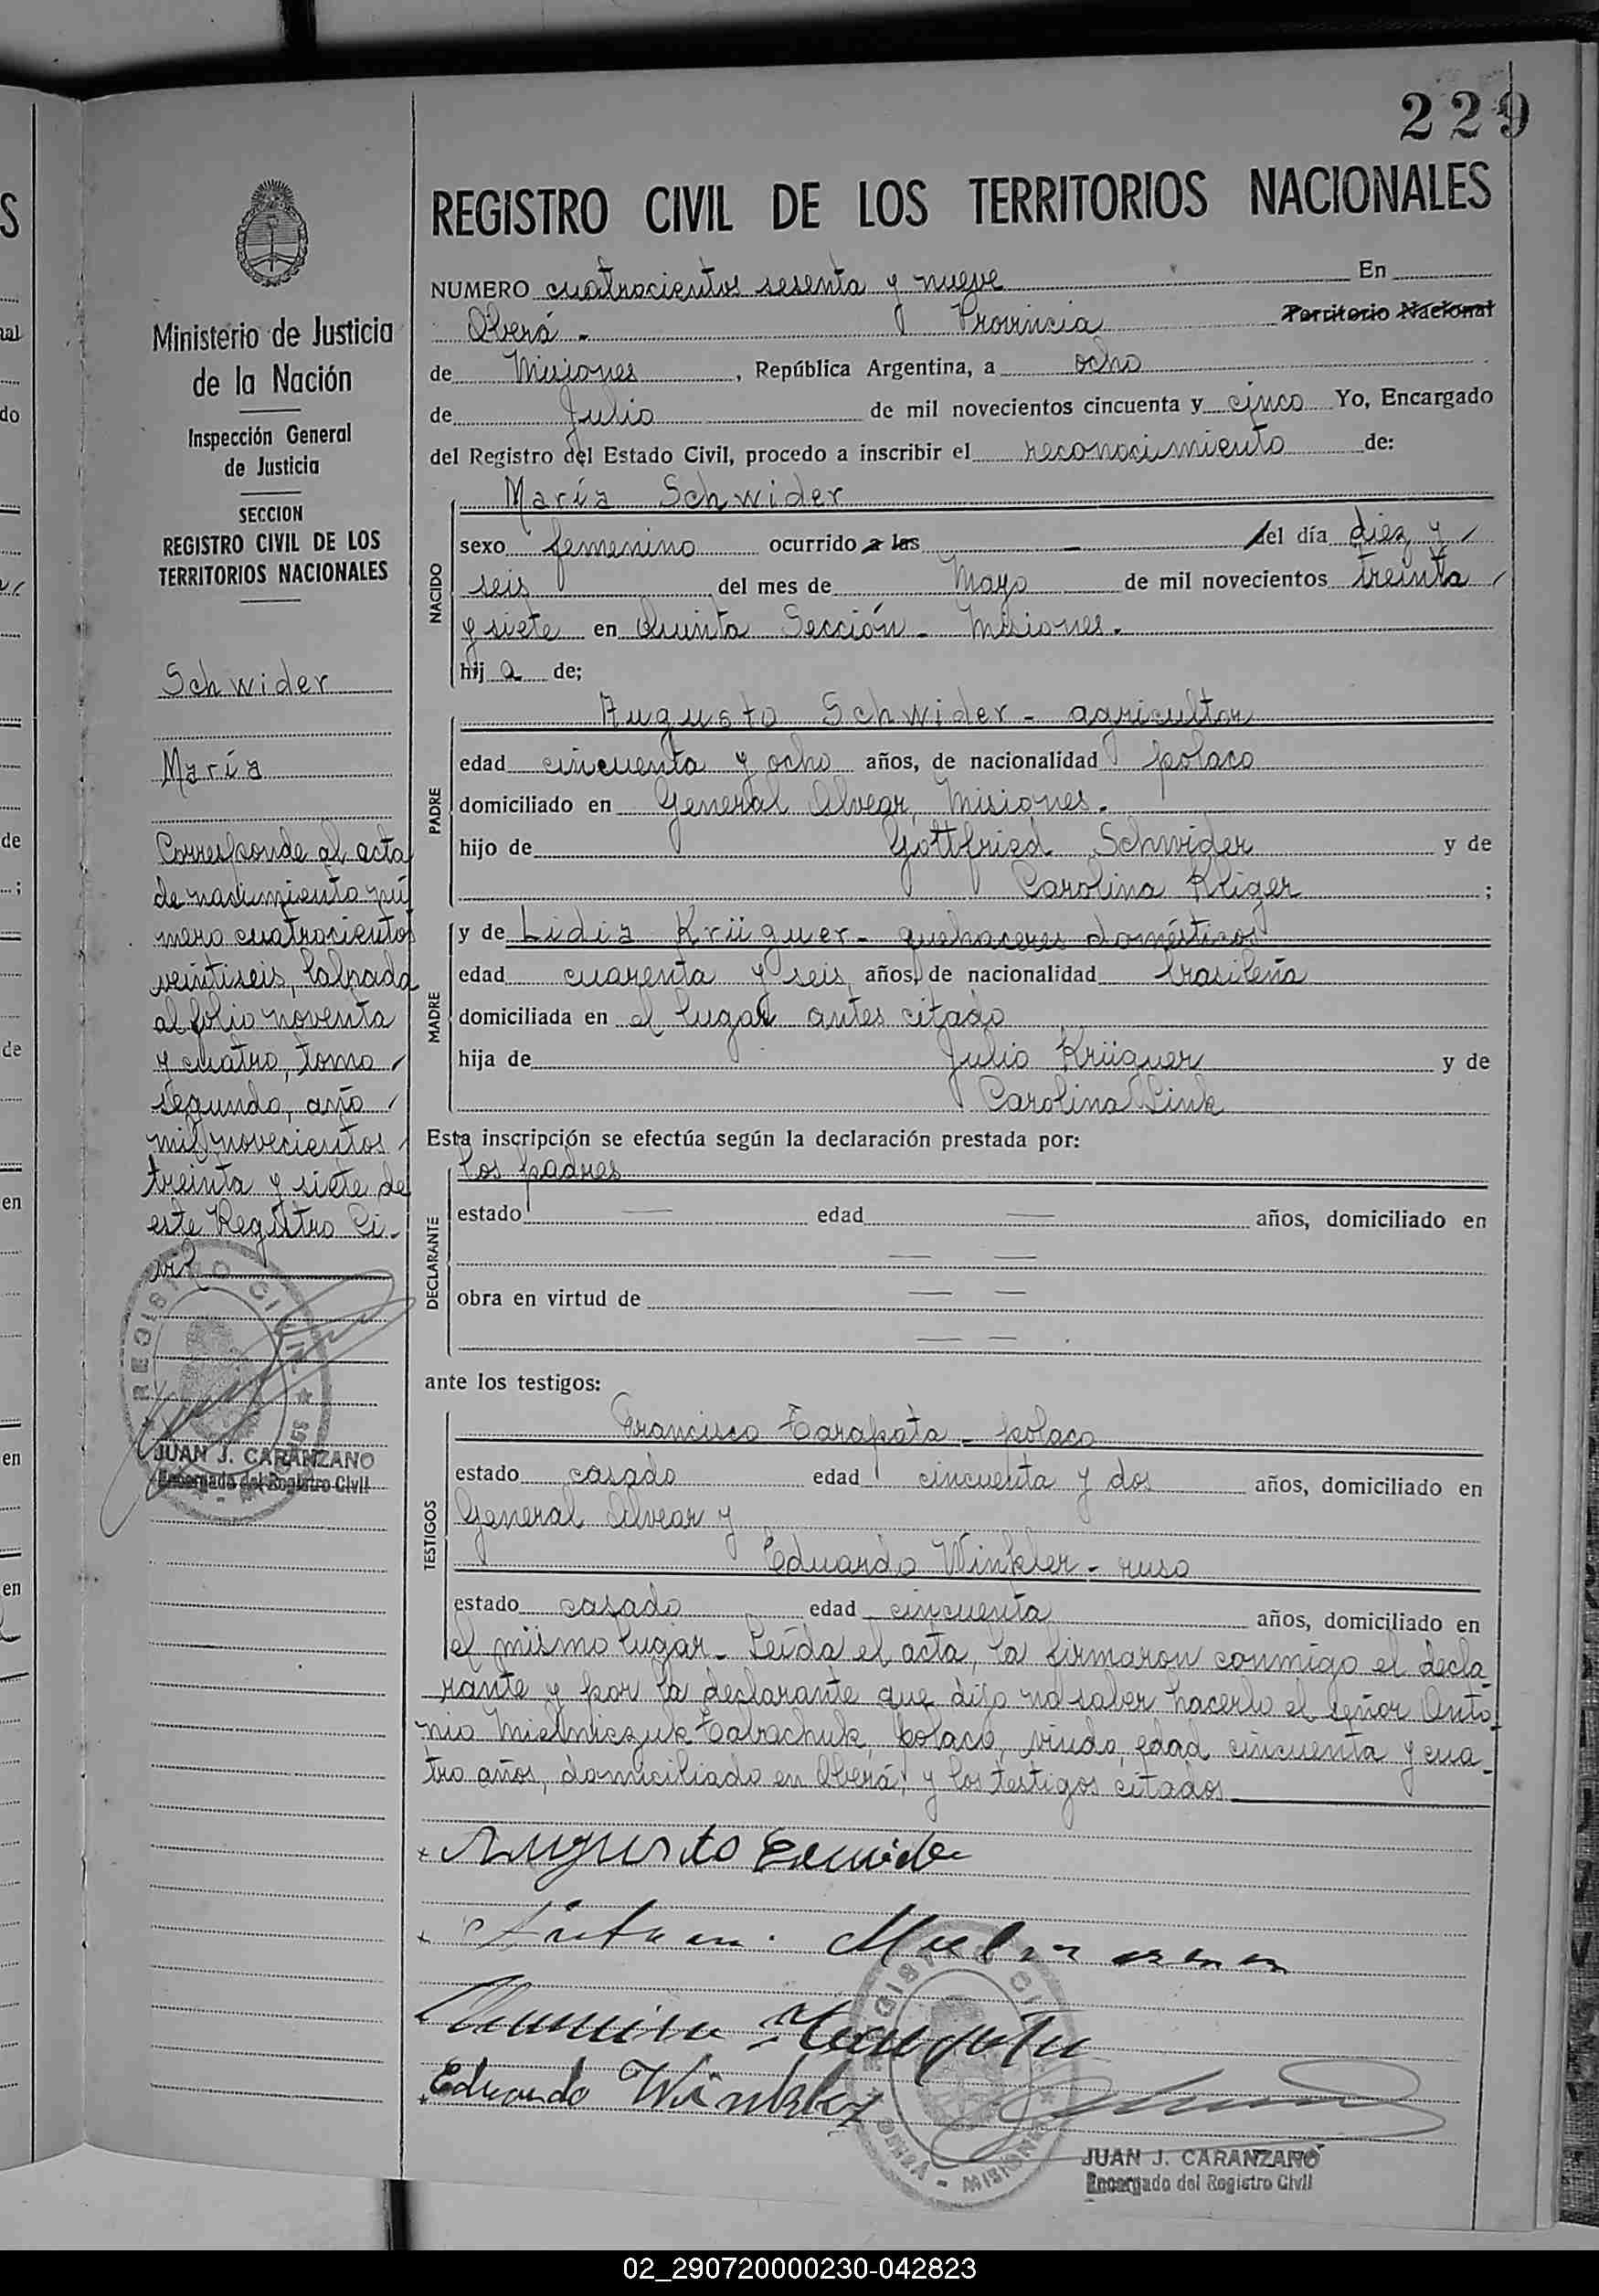 229
REGISTRO CIVIL DE LOS TERRITORIOS NACIONALES
NUMERO cuatrocientos sesenta y nueve En
Oberá.- Provincia Territorio Nacional
de Misiones, República Argentina, a ocho
de Julio de mil novecientos cincuenta y cinco Yo, Encargado
del Registro del Estado Civil, procedo a inscribir el reconocimiento de:
NACIDO
María Schwider
sexo femenino ocurrido a las — del día diez y
seis del mes de Mayo de mil novecientos treinta
y siete en Quinta Sección - Misiones.
hija de;
PADRE
Augusto Schwider - agricultor
edad cincuenta y ocho años, de nacionalidad polaco
domiciliado en General Alvear, Misiones.
hijo de Gottfried Schwider y de
Carolina Kliger;
MADRE
y de Lidia Krüguer - quehaceres domésticos
edad cuarenta y seis años, de nacionalidad brasileña
domiciliada en el lugar antes citado
hija de Julio Krüguer y de
Carolina Link
Esta inscripción se efectúa según la declaración prestada por:
DECLARANTE
los padres
estado — edad — años, domiciliado en
— —
obra en virtud de — —
— —
ante los testigos:
TESTIGOS
Francisco Tarapata - polaco
estado casado edad cincuenta y dos años, domiciliado en
General Alvear y
Eduardo Winkler - ruso
estado casado edad cincuenta años, domiciliado en
el mismo lugar. Leída el acta, la firmaron conmigo el decla
rante y por la declarante que dijo no saber hacerlo el señor Anto-
nio Mielniczuk Tabachuk, polaco, viudo, edad cincuenta y cua-
tro años, domiciliado en Oberá, y los testigos citados
Augusto
Eduardo Winkler
REGISTRO CIVIL
OBERÁ - MISIONES
JUAN J. CARANZANO
Encargado del Registro Civil
Ministerio de Justicia
de la Nación
Inspección General
de Justicia
SECCION
REGISTRO CIVIL DE LOS
TERRITORIOS NACIONALES
Schwider
María
Corresponde al acta
de nacimiento nú
mero cuatrocientos
veintiseis, labrada
al folio noventa
y cuatro, tomo
segundo, año
mil novecientos
treinta y siete de
este Registro Ci-
vil
REGISTRO CIVIL
JUAN J. CARANZANO
Encargado del Registro Civil
02_290720000230-042823